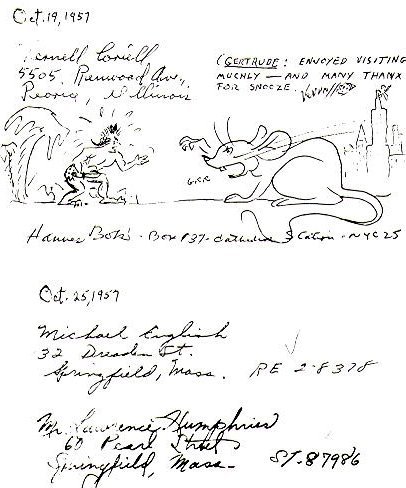 Oct. 19, 1957
Vernell Coriell
5505, Renwood Av.,
Peoria, Illinois
(GERTRUDE: ENJOYED VISITING
MUCHLY — AND MANY THANX
FOR SNOOZE.
GRR
Hannes Bok - Box 137 - Cathedral Station - NYC 25
Oct. 25, 1957
Michael English
32 Dresden St.
Springfield, Mass. RE 2-8378
Mr. Lawrence Humphries
60 Pearl Street
Springfield, Mass. ST-87986